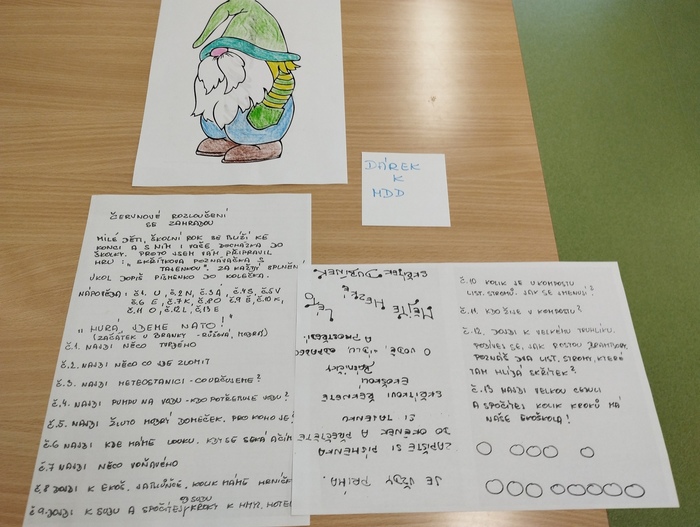 DÁREK
K
MDD
ČERVNOVÉ ROZLOUČENÍ
SE ZAHRADOU
MILÉ DĚTI, ŠKOLNÍ ROK SE BLÍŽÍ KE
KONCI A S NÍM I VAŠE DOCHÁZKA DO
ŠKOLKY. PROTO JSEM VÁM PŘIPRAVIL
HRU: „SKŘÍTKOVA POZNÁVAČKA S
TAJENKOU". ZA KAŽDÝ SPLNĚNÝ
ÚKOL DOPIŠ PÍSMENKO DO KOLEČKA.
NÁPOVĚDA: Č.1. U, Č.2 N, Č.3 A, Č.4 S, Č.5 V
Č.6 E, Č.7 K, Č.8 O Č.9 Š, Č.10 K,
Č.11 O, Č.12 L, Č.13 E
„HURÁ, JDEME NA TO!"
(ZAČÁTEK U BRANKY - RŮŽOVÁ, MODRÁ)
Č.1. NAJDI NĚCO TVRDÉHO
Č.2. NAJDI NĚCO CO JDE ZLOMIT
Č.3. NAJDI METEOSTANICI - CO URČUJEME?
Č.4. NAJDI PUMPU NA VODU - KDO POTŘEBUJE VODU?
Č.5. NAJDI ŽLUTO MODRÝ DOMEČEK. PRO KOHO JE?
Č.6 NAJDI KDE MÁME LOUKU. KDY SE SEKÁ A ČÍM
Č.7 NAJDI NĚCO VOŇAVÉHO
Č.8 DOJDI K EKOŠ. JABLŮŇCE, KOLIK MÁME
OD SUDU
Č.9. DOJDI K SUDU A SPOČÍTEJ KROKY K HMYZ. HOTE
JE VŽDY PRIMA.
ZAPIŠTE SI PÍSMENKA
DO OKÉNEK A PŘEČTĚTE
SI TAJENKU
SKŘÍTKOVI ŘEKNĚTE
EKOŠKOU
BÁSNIČKY
O VODĚ, VZDUCHU,
A PROSTŘEDÍ.
MĚJTE HEZKÉ
LÉTO
SKŘÍTEK
Č.10 KOLIK JE U KOMPOSTU
LIST. STROMŮ. JAK SE JMENUJÍ?
Č.11. KDO ŽIJE V KOMPOSTU?
Č.12. DOJDI K VELKÉMU TRUHLÍKU.
PODÍVEJ SE, JAK ROSTOU BRAMBORY.
POZNÁŠ DVA LIST. STROMY, KTERÉ
TAM HLÍDÁ SKŘÍTEK?
Č.13 NAJDI VELKOU CEDULI
A SPOČÍTEJ KOLIK KROKŮ MÁ
NAŠE EKOŠKOLA!